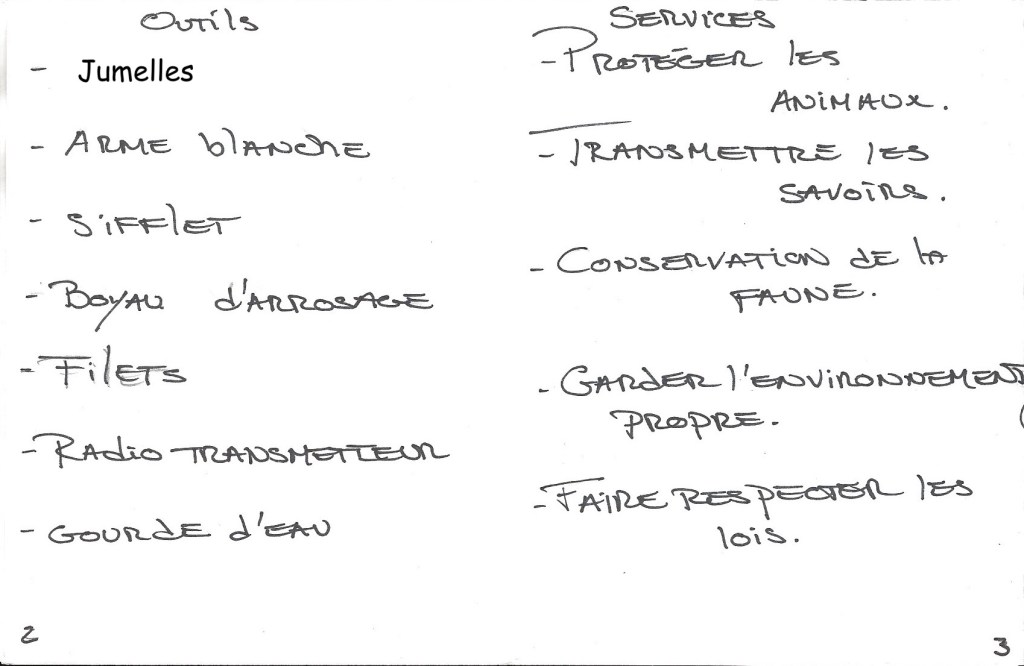 Outils
- Jumelles
- ARME blANChE
- SiFFlET
- BOYAU d'ARROSAGE
- FilETS
- RAdio TRANSMETTEUR
- GOURDE d'EAU
2
SERVICES
- PROTÉGER lES
ANIMAUX.
- TRANSMETTRE lES
SAVOIRS.
- CONSERVATION DE lA
FAUNE.
- GARDER l'ENVIRONNEMENT
PROPRE.
- FAIRE RESPECTER lES
lOiS.
3